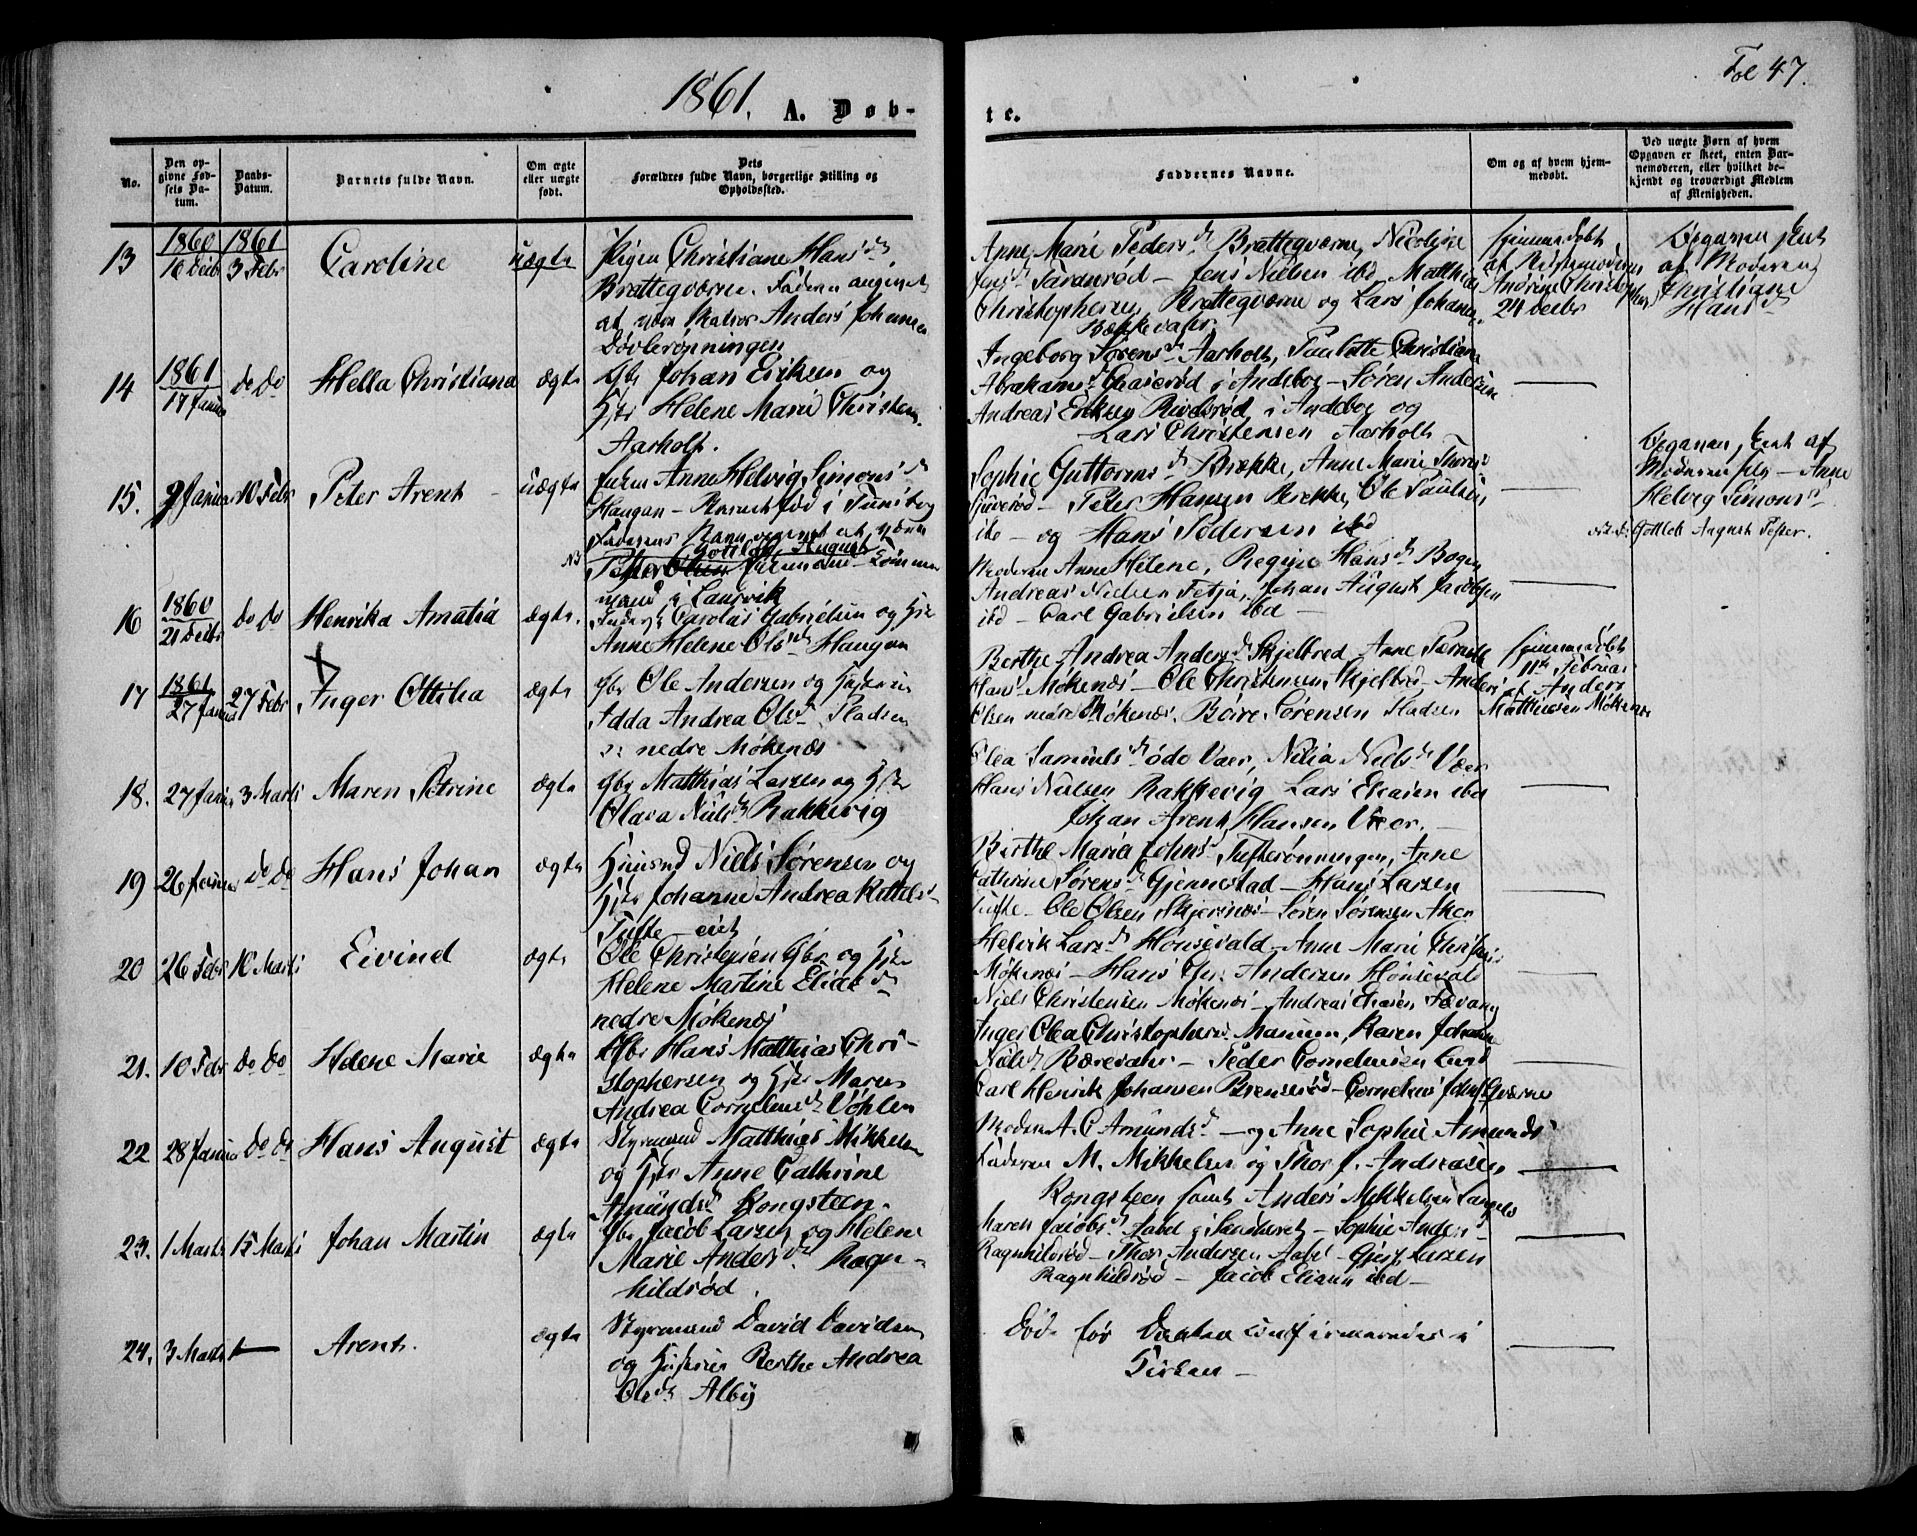 1861.
A. Døb-
te.
Fol 47.
No.
Den op-
givne Fød-
sels Da-
tum.
Daabs-
Datum.
Barnets fulde Navn.
Om ægte
eller uægte
født.
Dets
Forældres fulde Navn, borgerlige Stilling og
Opholdssted.
Faddernes Navne.
Om og af hvem hjem-
medøbt.
Ved uægte Børn af hvem
Opgaven er skeet, enten Bar-
nemoderen, eller hvilket be-
kjendt og troværdigt Medlem
af Menigheden.
13 1860 16 Decbr 1861 3 Febr Caroline uægte
Pigen Christiane Hansd
Brattegværne. Faderen angivet
at være Matros Anders Johannesen
Døvlerønningen
Anne Marie Pedersd Brattegværne, Nicoline
Jensd Taranrød – Jens Nielsen ibd Mathias
Christophersen Brattegværne og Lars Johans.
Bækkevahr.
Hjemmedøbt
Andrine Christophs
24 Decbr
Opgaven skeet
af Moderen
Christiane
Hansd
14 1861 17 Januar do do Hella Christiana ægte
Gbr Johan Eriksen og
Hst Helene Marie Christens
Aarholt.
Ingeborg Sørensd Aarholt, Paulette Christiane
Abrahamsd i Andebo – Søren Andersen
Andreas Eriksen i Andebo og
Lars Christensen Aarholt
15. 9 Januar 10 Febr Peter Arent – uægte
Anne Helvig Simonsd
Haugan – født i Tunsberg
Faderens Navn opgivet at være
NB Gottlob August
Peter Olsen Tømmer
mand i Laurvik
Sophie Guttormsd Brække, Anne Marie Thorsd
Gjuverød – Peter Hansen Brekke, Ole Paulsen
ibd – og Hans Pedersen ibd
Opgaven skeet af
Moderen selv – Anne
Helvig Simonsd
Gottlob August Pester.
16 1860 21 Decbr do do Henrika Amalia ægte.
Inderst Carolus Gabrielsen og Hst
Anne Helene Olsd Haugan
Moderen Anne Helene, Regine Hansd Bogen
Andreas Nielsen Fetja, Johan August Jacobsen
ibd – Carl Gabrielsen ibd –
17 1861 27 Januar 27 Febr Inger Ottilia ægte
Gbr Ole Andersen og Hustru
Edda Andrea Olsd Pladsen
nedre Møkenæs
Berthe Andrea Andersd Skjelbred Anne
Hans Møkenæs – Ole Christensen Skjelbred – Anders
Olsen Møkenæs. Boire Sørensen Pladsen
Hjemmedøbt
11te Februar
af Anders
Matthiesen Møkenæs
18. 27 Januar 3 Marts Maren Petrine ægte
Gbr Matthias Larsen og Hst
Olava Nielsd Rakkevig
Olea Samuelsd øde Vaer, Nilia Nielsd Vaer
Hans Nielsen Rakkevig Lars Eliasen ibd
Johan Arent Hansen Vaer. –
19 26 Januar do do Hans Johan ægte
Huusmd Niels Sørensen og
Hst Johanne Andrea Kittelsd
Tufte – eiet
Birthe Maria Johnsd Tufterønningen, Anne
Cathrine Sørensd Gjennestad – Hans Larsen
Tufte – Ole Olsen Skjersnæs – Søren Sørensen Aker
20 26 Febr 10 Marts Eivind ægte
Ole Christensen Gbr og Hst
Helene Martine Eliasd
nedre Møkenæs
Helvik Larsd Hønsevald – Anne Marie Christens
Møkenæs – Hans Chr. Andersen Hønsevald
Niels Christensen Møkenæs – Andreas Eliasen Fævang
21. 10 Febr do do Helene Marie ægte
Gbr Hans Matthias Chri-
stophersen og Hst Maren
Andrea Corneliusd Vøhlen
Inger Olea Christophersd Manum, Karen Johanne
Nielsd Bærevahr – Peder Corneliusen
Carl Henrik Johansen Brenserød – Cornelius Johns Gværne
22 28 Januar do do Hans August ægte
Styrmand Matthias Mikkelsen
og Hst Anne Cathrine
Amundsd Kongsteen.
Moderen A. C. Amundsd – og Anne Sophie Amundsd
Faderen M. Mikkelsen og Thor J. Andreasen
Kongsteen samt Anders Mikkelsen
23. 1 Marts 15 Marts Johan Martin ægte
Gbr Jacob Larsen og Helene
Marie Andersd Ragn-
hildsrød.
Maren Jacobsd Aabel i Sandeherred – Sophie Andersd
Ragnhildsrød – Thor Andersen Aabel – Gjert Larsen
Ragnhildsrød – Jacob Eliasen ibd –
24. 3 Marts Arent. ægte
Styrmand David Davidsen
og Hustru Berthe Andrea
Olsd Alby
Døde før Daaben confirmeredes i
Kirken –